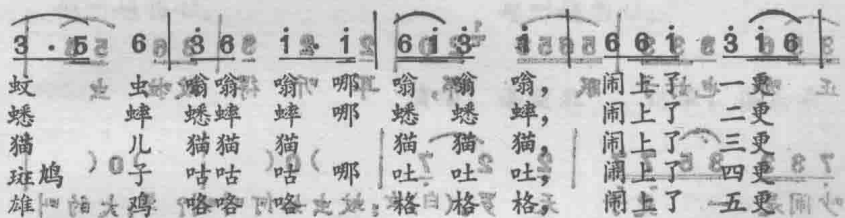 3 · 5 6 | 3 6 i · i | 6 i 3 i | 6 6 i 3 i 6
蚊 虫 嗡 嗡 嗡 哪 嗡 嗡 嗡， 闹 上 了 一 更
蟋 蟀 蟋 蟀 蟀 哪 蟋 蟋 蟀， 闹 上 了 二 更
猫 儿 猫 猫 猫 猫 猫 猫， 闹 上 了 三 更
斑 鸠 子 咕 咕 咕 哪 吐 吐 吐， 闹 上 了 四 更
雄 鸡 咯 咯 咯 格 格 格， 闹 上 了 五 更